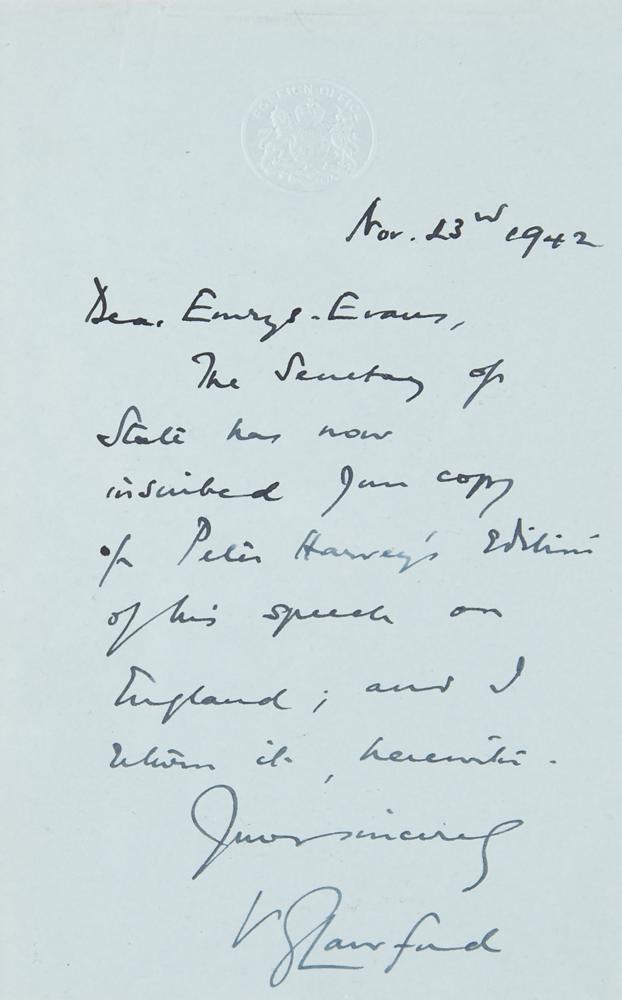 FOREIGN OFFICE
Nov. 23rd 1942
Dear Emrys-Evans,
The Secretary of
State has now
inscribed your copy
of Peter Harvey's Edition
of his speech on
England; and I
return it, herewith.
Yours sincerely
V G Lawford